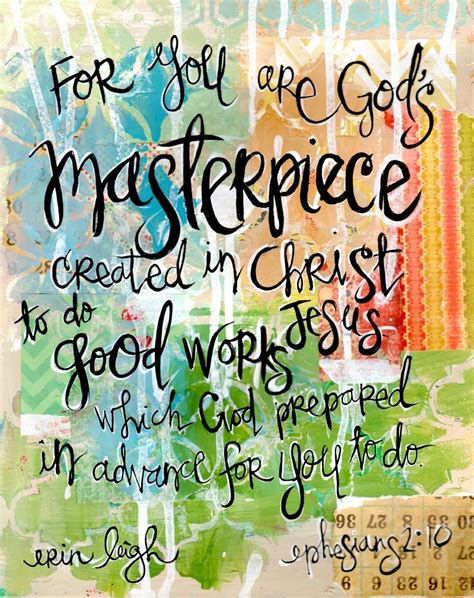 FOR You are God's
masterpiece
created in Christ
to do Jesus
good works
which God prepared
in advance for you to do.
erin leigh ephesians 2:10
36 27 8 25
16 9 42